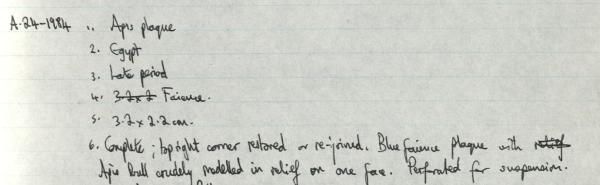 A.24-1984 1. Apis plaque
2. Egypt
3. Late period
4. 3.2 x 2 Faience.
5. 3.2 x 2.2 cm.
6. Complete; top right corner restored or re-joined. Blue faience plaque with relief
Apis Bull crudely modelled in relief on one face. Perforated for suspension.